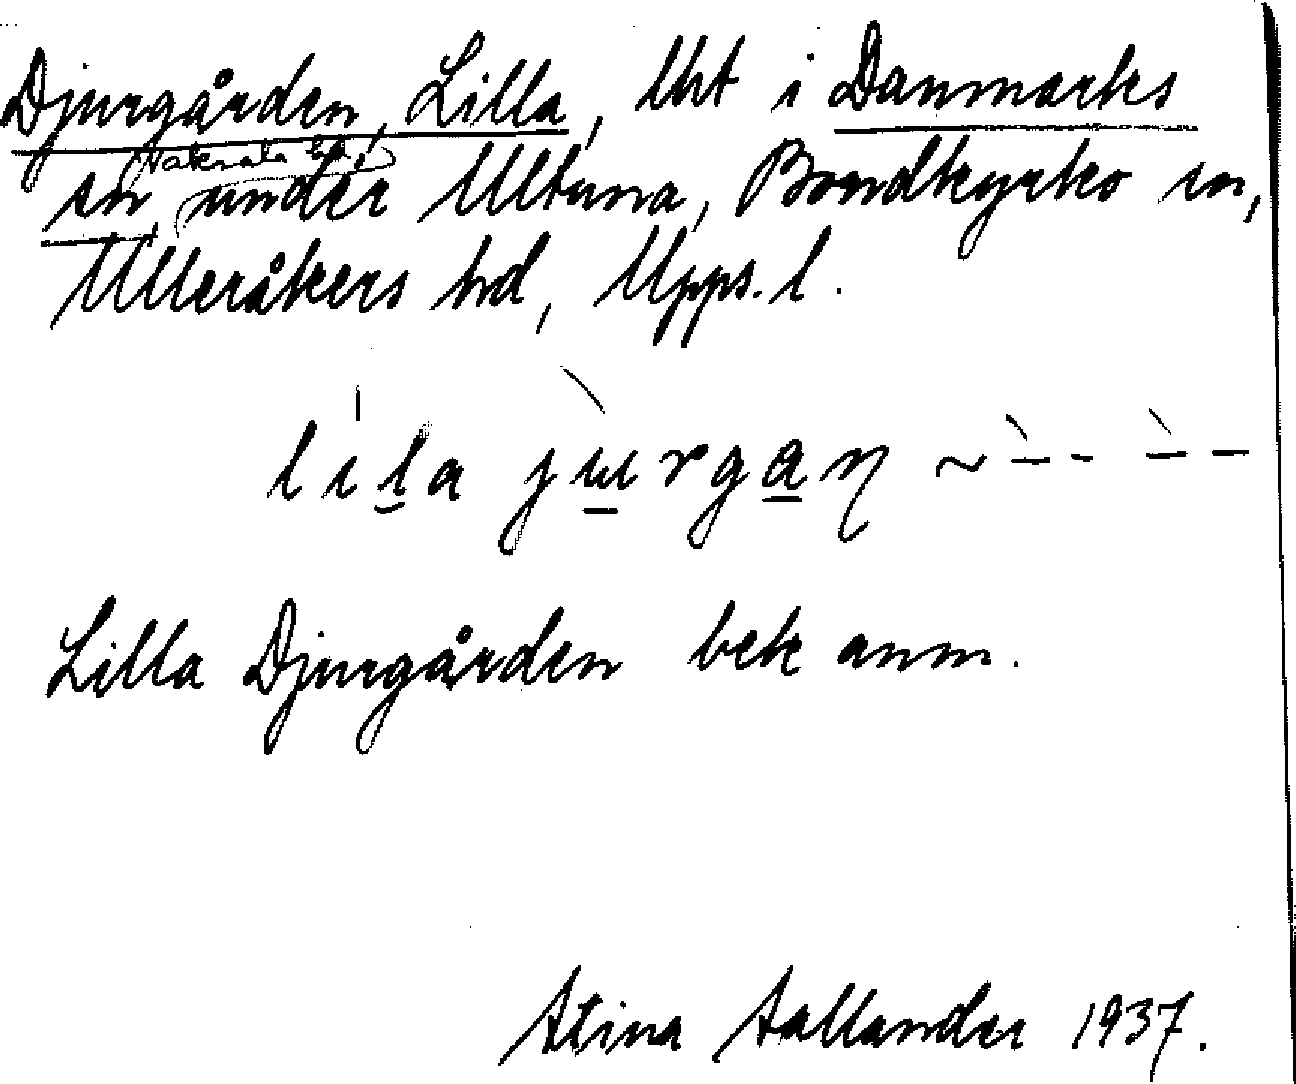 Djurgården, Lilla, lht i Danmarks
(Vaksala hd)
sn, (under Ultuna, Bondkyrko sn,
Ulleråkers hd, Upps. l.
lila jurgaɳ ~ -- --
Lilla Djurgården bek anm.
Stina Sallander 1937.